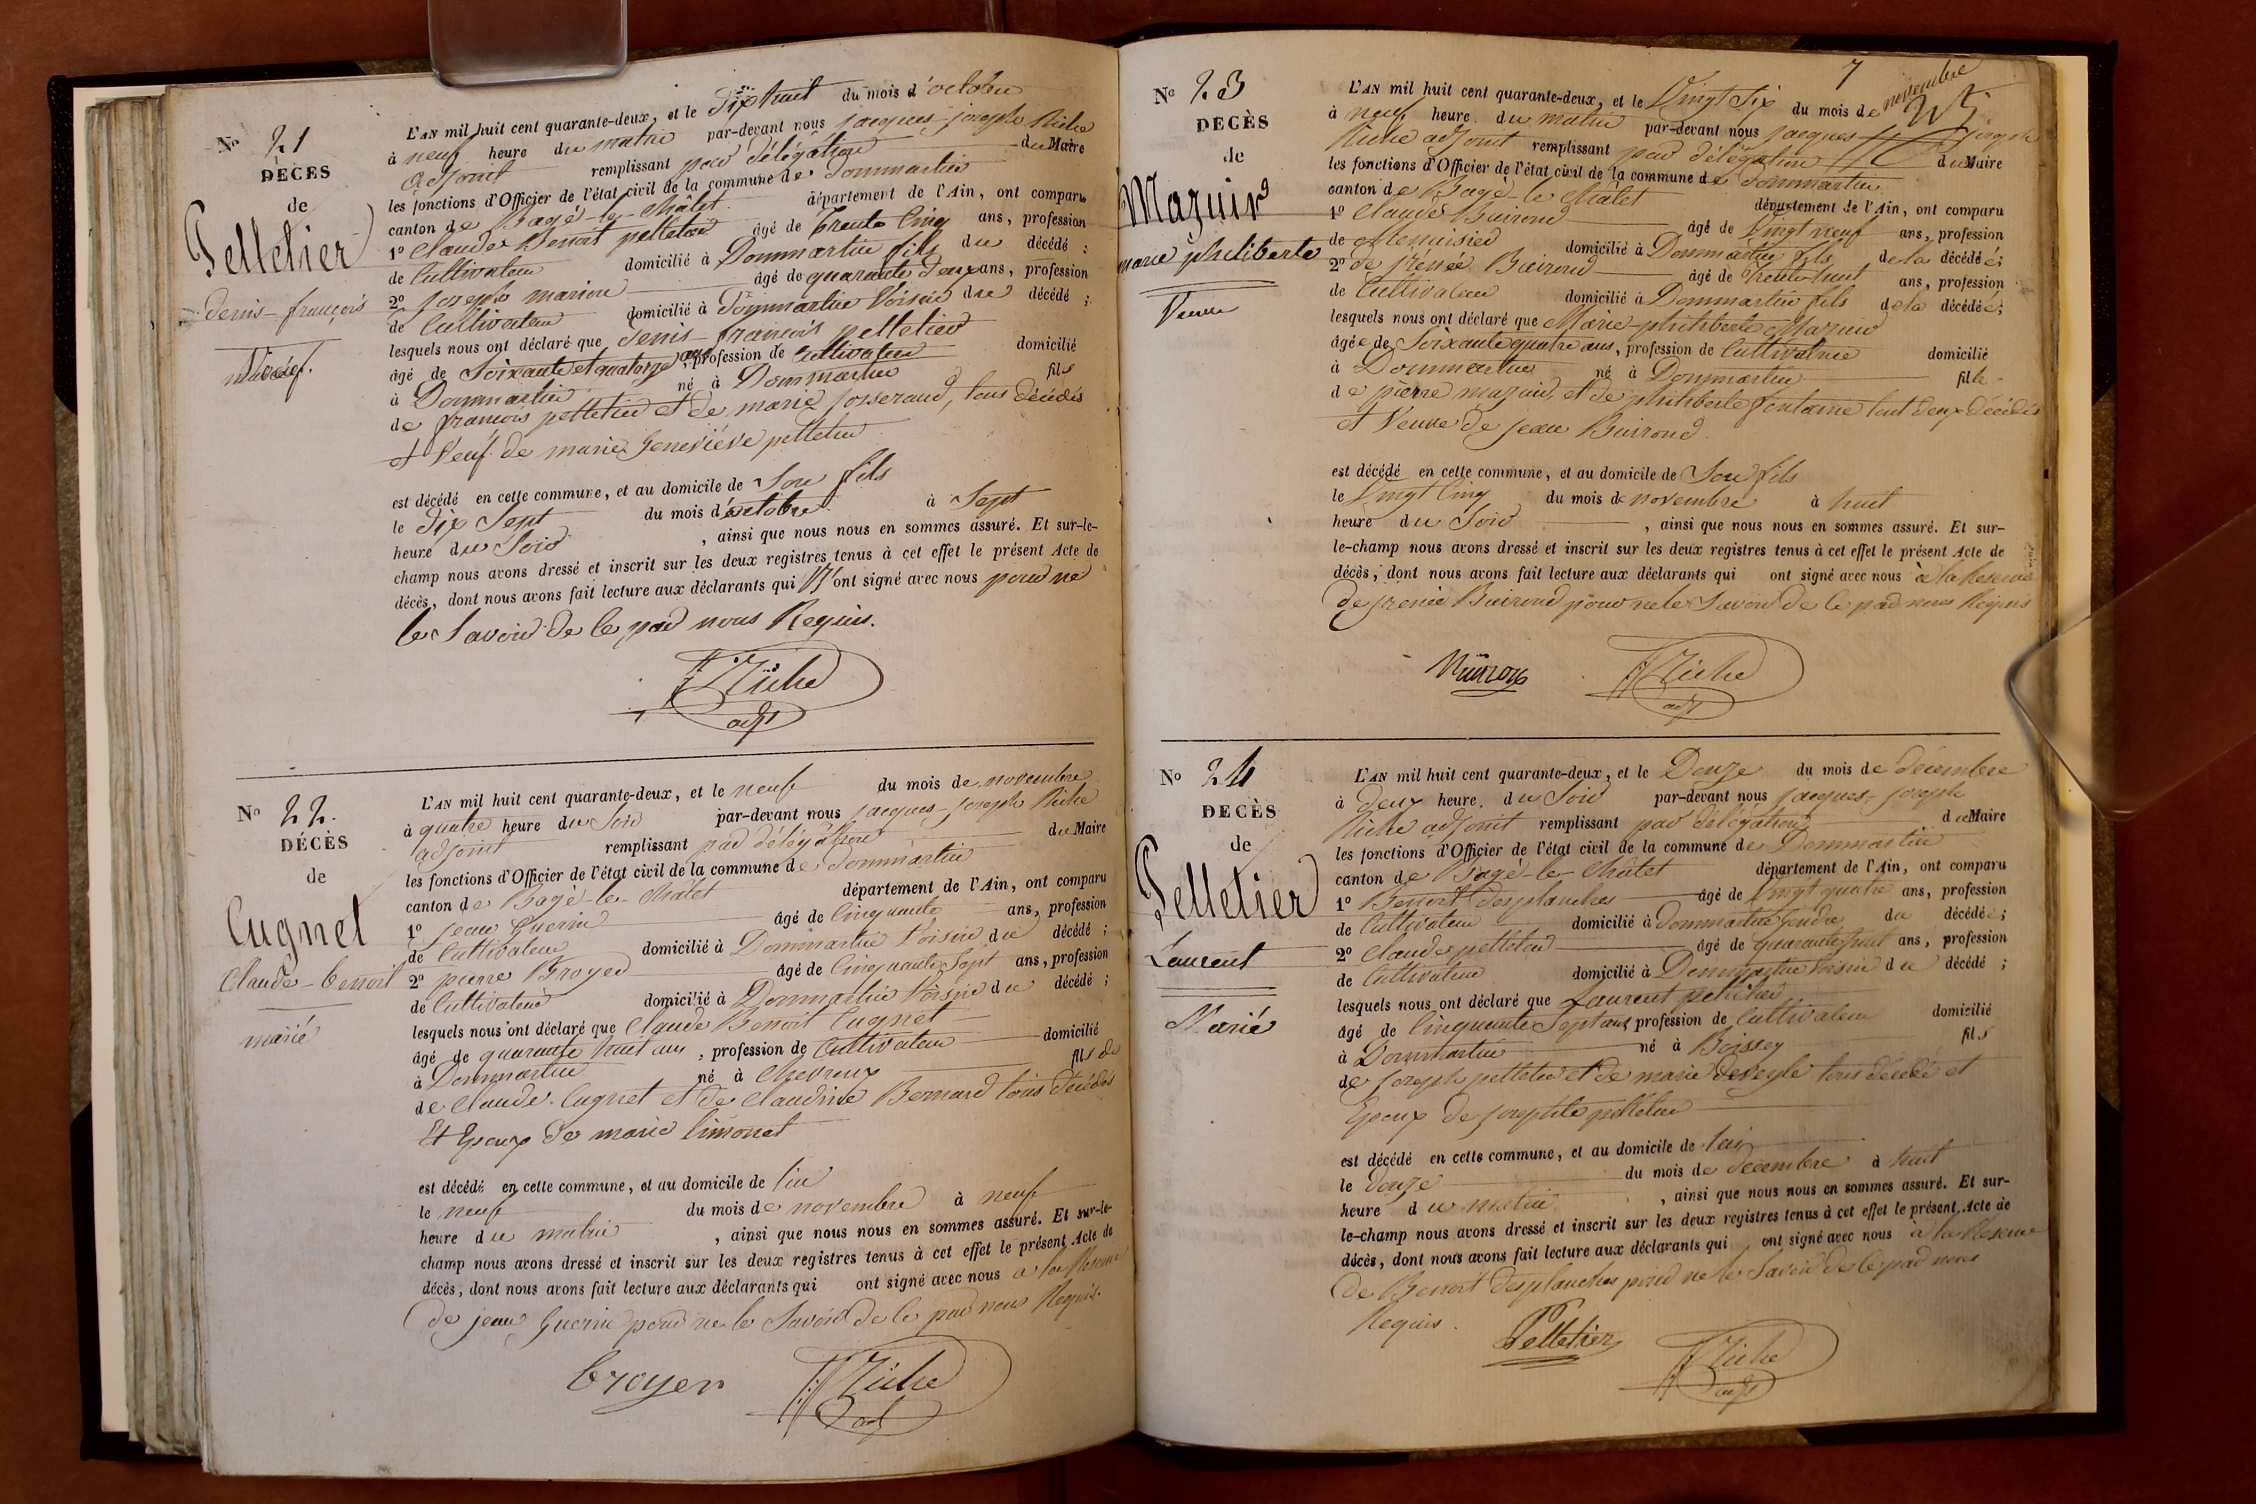 No 21
DÉCÈS
de
Pelletier
denis-françois
Veuf.
L'AN mil huit cent quarante-deux, et le Dix huit du mois d'octobre
à neuf heure du matin par-devant nous jacques-joseph Riche
adjoint remplissant par délégation du Maire
les fonctions d'Officier de l'état civil de la commune de Dommartin
canton de Bagé-le-Châtel département de l'Ain, ont comparu
1o Claude Benoit pelletier âgé de trente cinq ans, profession
de Cultivateur domicilié à Dommartin fils du décédé ;
2o joseph marion âgé de quarante deux ans, profession
de Cultivateur domicilié à Dommartin Voisin du décédé ;
lesquels nous ont déclaré que denis-françois pelletier
âgé de Soixante et quatorze ans, profession de Cultivateur domicilié
à Dommartin né à Dommartin fils
de françois pelletier et de marie josserand, tous décédés
et Veuf de marie Geneviéve pelletier
est décédé en cette commune, et au domicile de Son fils
le dix Sept du mois d'octobre à Sept
heure du Soir , ainsi que nous nous en sommes assuré. Et sur-le-
champ nous avons dressé et inscrit sur les deux registres tenus à cet effet le présent Acte de
décès, dont nous avons fait lecture aux déclarants qui N'ont signé avec nous pour ne
le Savoir de ce par nous Requis.
Riche
adjt
No 22.
DÉCÈS
de
Cugnet
Claude-benoit
marié
L'AN mil huit cent quarante-deux, et le neuf du mois de novembre
à quatre heure du Soir par-devant nous jacques-joseph Riche
adjoint remplissant par délégation du Maire
les fonctions d'Officier de l'état civil de la commune de Dommartin
canton de Bagé-le-Châtel département de l'Ain, ont comparu
1o jean Guerin âgé de Cinquante ans, profession
de Cultivateur domicilié à Dommartin Voisin du décédé ;
2o pierre Broyer âgé de Cinquante Sept ans, profession
de Cultivateur domicilié à Dommartin Voisin du décédé ;
lesquels nous ont déclaré que Claude Benoit Cugnet
âgé de quarante huit ans , profession de Cultivateur domicilié
à Dommartin né à Chevroux fils de
de Claude Cugnet et de Claudine Bernard tous décédés
Et Epoux de marie Simonet
est décédé en cette commune, et au domicile de lui
le neuf du mois de novembre à neuf
heure du matin , ainsi que nous nous en sommes assuré. Et sur-le-
champ nous avons dressé et inscrit sur les deux registres tenus à cet effet le présent Acte de
décès, dont nous avons fait lecture aux déclarants qui ont signé avec nous à la Reserve
de jean Guerin pour ne le Savoir de ce par nous Requis.
broyer Riche
adj
7
No 23
DÉCÈS
de
Mazuir
marie philiberte
Veuve
L'AN mil huit cent quarante-deux, et le Vingt Six du mois de novembre
à neuf heure du matin par-devant nous jacques joseph
Riche adjoint remplissant par délégation du Maire
les fonctions d'Officier de l'état civil de la commune de Dommartin
canton de Bagé-le-Châtel département de l'Ain, ont comparu
1o Claude Buirond âgé de Vingt neuf ans, profession
de Menuisier domicilié à Dommartin fils de la décédée ;
2o de Buirond âgé de trente huit ans, profession
de Cultivateur domicilié à Dommartin fils de la décédée ;
lesquels nous ont déclaré que Marie-philiberte Mazuir
âgée de Soixante quatre ans, profession de Cultivatrice domicilié
à Dommartin né à Dommartin fille
de pierre mazuir et de philiberte fontaine tout deux décédés
et Veuve de jean Buirond.
est décédé en cette commune, et au domicile de Son fils
le Vingt Cinq du mois de novembre à huit
heure du Soir , ainsi que nous nous en sommes assuré. Et sur-
le-champ nous avons dressé et inscrit sur les deux registres tenus à cet effet le présent Acte de
décès, dont nous avons fait lecture aux déclarants qui ont signé avec nous à la Reserve
de Buirond pour ne le Savoir de ce par nous Requis
Riche
adjt
No 24
DÉCÈS
de
Pelletier
Laurent
Marié
L'AN mil huit cent quarante-deux, et le Douze du mois de décembre
à deux heure du Soir par-devant nous jacques-joseph
Riche adjoint remplissant par délégation du Maire
les fonctions d'Officier de l'état civil de la commune de Dommartin
canton de Bagé-le-Châtel département de l'Ain, ont comparu
1o Benoit desplanches âgé de Vingt quatre ans, profession
de Cultivateur domicilié à Dommartin Gendre du décédé ;
2o Claude pelletier âgé de quarante huit ans, profession
de Cultivateur domicilié à Dommartin Voisin du décédé ;
lesquels nous ont déclaré que Laurent pelletier
âgé de Cinquante Sept ans profession de Cultivateur domicilié
à Dommartin né à Boissey fils
de joseph pelletier et de marie deveyle tous décédé et
Epoux de josephte pelletier
est décédé en cette commune, et au domicile de lui
le douze du mois de décembre à huit
heure du matin , ainsi que nous nous en sommes assuré. Et sur-
le-champ nous avons dressé et inscrit sur les deux registres tenus à cet effet le présent Acte de
décès, dont nous avons fait lecture aux déclarants qui ont signé avec nous à la Reserve
de Benoit desplanches pour ne le Savoir de ce par nous
Requis.
Pelletier Riche
adjt